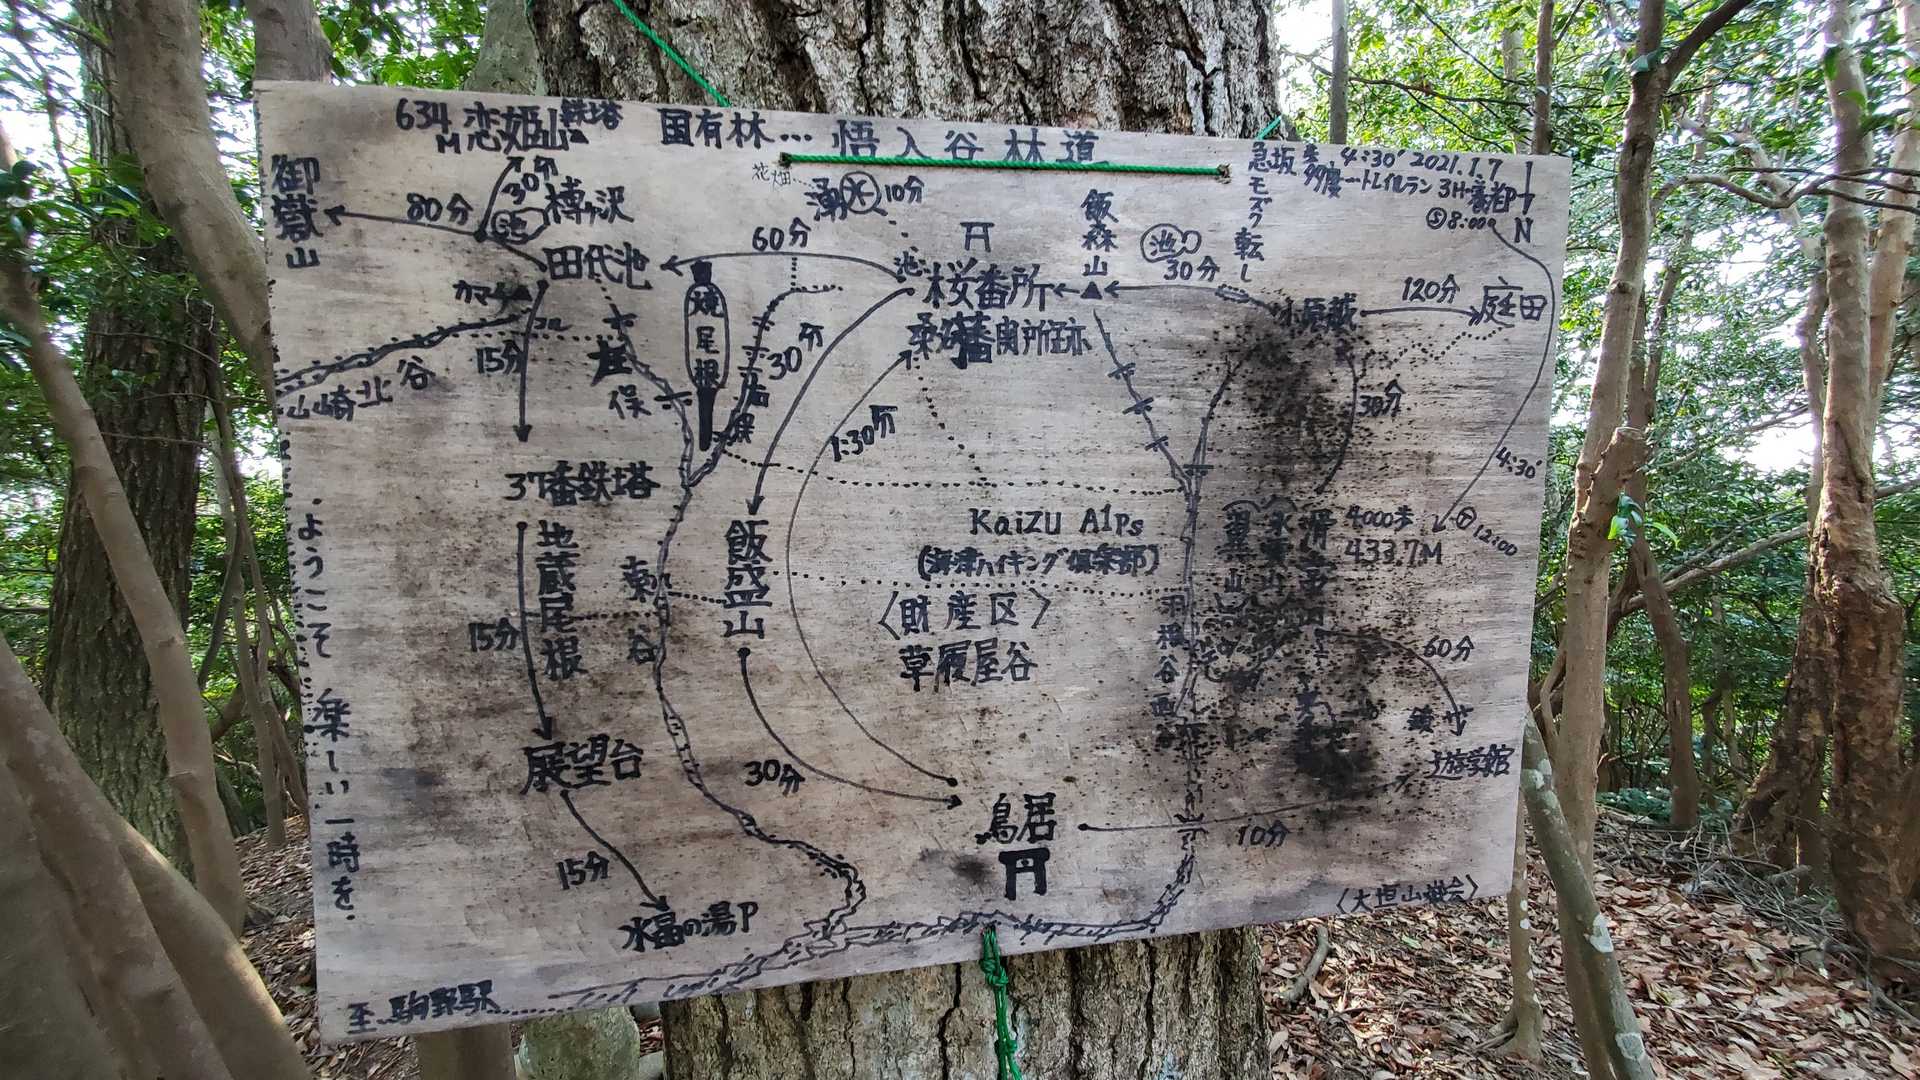 634M 恋姫山 鉄塔
国有林… 悟入谷林道
急坂 モズク転し
4:30' 2021.1.7
多度
トレイルラン 3H
⑤8:00
N
御嶽山
80分
30分
池
樽ヶ沢
花畑
湧水 10分
飯森山
池
30分
60分
田代池
池
桜番所
120分
庭田
カマ
15分
焼尾根
30分
関所跡
山崎北谷
俣
1:30分
30分
4:30'
37番鉄塔
12:00
Kaizu Alps
(海津ハイキング倶楽部)
4000歩
433.7M
地蔵尾根
飯盛山
東谷
翼山
15分
〈財産区〉
草履屋谷
羽根谷西
60分
ようこそ 楽しい一時を.
展望台
30分
遊学館
鳥居
10分
15分
水晶の湯P
〈大垣山岳会〉
至.駒野駅